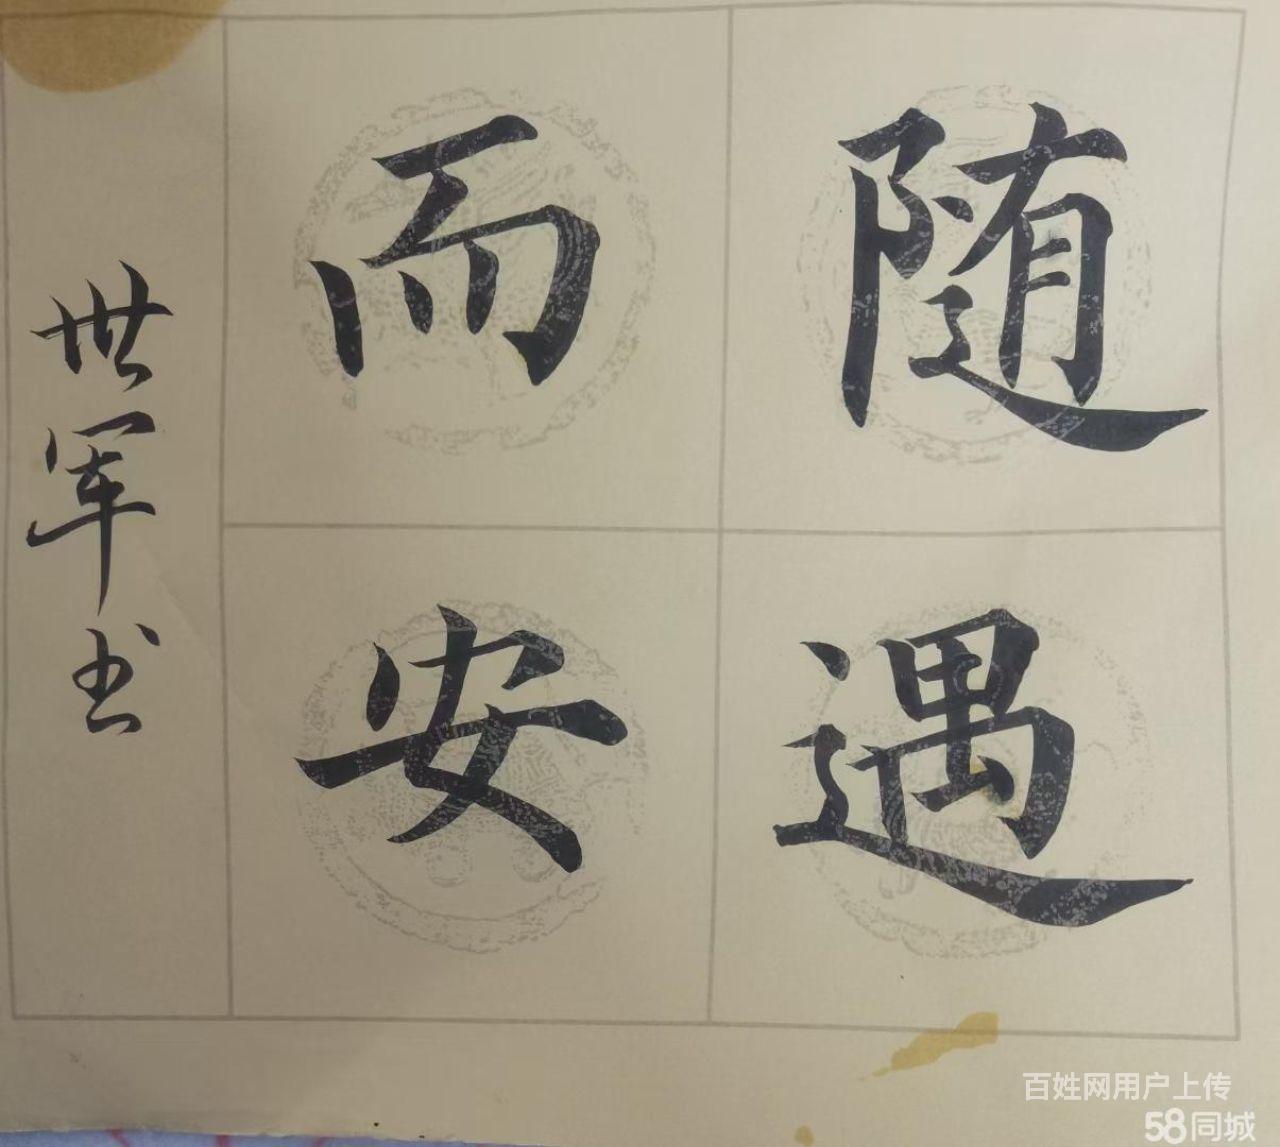 随遇
而安
世军书
百姓网用户上传
58同城